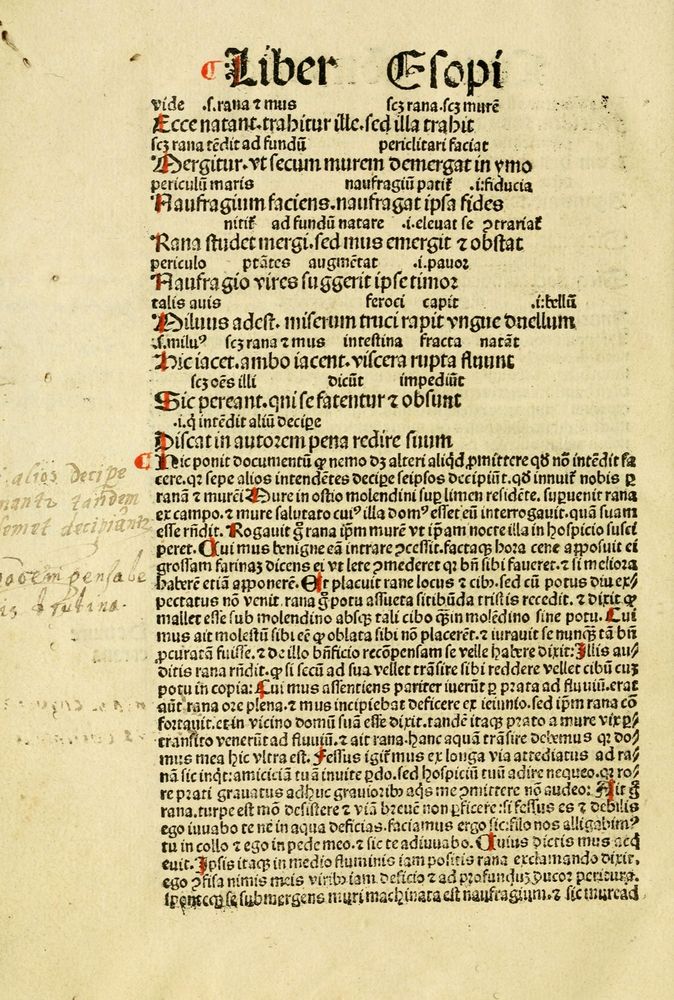 ¶ Liber Esopi
vide .s. rana ⁊ mus scꝫ rana. scꝫ murē
Ecce natant. trahitur ille. sed illa trahit
scꝫ rana tēdit ad fundū periclitari faciat
Mergitur. vt secum murem demergat in ymo
periculū maris naufragiū patit᷑ .i: fiducia
Naufragium faciens. naufragat ipsa fides
nitit᷑ ad fundū natare .i. eleuat se ꝯtrariat᷑
Rana studet mergi. sed mus emergit ⁊ obstat
periculo ptātes augmētat .i. pauor
Naufragio vires suggerit ipse timor
talis auis feroci capit .i: bellū
Miluus adest. miserum truci rapit vngue duellum
.s. miluꝰ scꝫ rana ⁊ mus intestina fracta natāt
Hic iacet. ambo iacent. viscera rupta fluunt
scꝫ oēs illi dicūt impediūt
Sic pereant. qui se fatentur ⁊ obsunt
.i. q̇ intēdit aliū decipe
Discat in autorem pena redire suum
¶ Hic ponit documentū ꝙ nemo dꝫ alteri aliqd ꝓmittere qđ nō intēdit fa
cere. qꝛ sepe alios intendētes decipe seipsos decipiūt. qđ innuit᷑ nobis ꝑ
ranā ⁊ murē: Mure in ostio molendini suꝑ limen residēte. suꝑuenit rana
ex campo. ⁊ mure salutato cuiꝰ illa domꝰ esset eum interrogauit. quā suam
esse rn̄dit. Rogauit g̊ rana ip̄m murē vt ip̄am nocte illa in hospicio susci
peret. Qui mus benigne eam intrare ꝯcessit. factaqꝫ hora cene apposuit ei
grossam farinaꝫ dicens ei vt lete ꝯmederet qꝛ bn̄ sibi faueret. ⁊ si meliora
haberē etiā apponerē. Et placuit rane locus ⁊ cibꝰ. sed cū potus diu ex⸗
pectatus nō venit. rana g̊ potu assueta sitibūda tristis recedit. ⁊ dixit ꝙ
mallet esse sub molendino absqꝫ tali cibo q̄ꝫ in molēdino sine potu. Cui
mus ait molestū sibi eē ꝙ oblata sibi nō placerēt. ⁊ iurauit se nunqꝫ tā bn̄
ꝓcuratā fuisse. ⁊ de illo bn̄ficio recōpensam se velle habere dixit: Illis au⸗
ditis rana rn̄dit. ꝙ si secū ad sua vellet trāsire sibi reddere vellet cibū cuꝫ
potu in copia: Cui mus assentiens pariter iuerūt ꝑ prata ad fluuiū. erat
aūt rana ore plena. ⁊ mus incipiebat deficere ex ieiunio. sed ip̄m rana cō
fortauit. et in vicino domū suā esse dixit. tandē itaqꝫ prato a mure vix ꝑ⸗
transito venerūt ad fluuiū. ⁊ ait rana. hanc aquā trāsire debemus qꝛ do⸗
mus mea hic vltra est. Fessus igit᷑ mus ex longa via attediatus ad ra⸗
nā sic inqͭ: amiciciā tuā inuite ꝑdo. sed hospiciū tuū adire nequeo. qꝛ ro⸗
re prati grauatus adhuc grauioribꝰ aq̄s me ꝯmittere nō audeo: Ait g̊
rana. turpe est mō desistere ⁊ viā breuē non ꝑficere: si fessus es ⁊ debilis
ego iuuabo te ne in aqua deficias. faciamus ergo sic: filo nos alligabimꝰ
tu in collo ⁊ ego in pede meo. ⁊ sic te adiuuabo. Cuius dictis mus acq̇
euit. Ipsis itaqꝫ in medio fluminis iam positis rana exclamando dixit.
ego ꝯfisa nimis meis viribꝰ iam deficio ⁊ ad profunduꝫ ducor peritura.
sponteqꝫ se submergens muri machinata est naufragium. ⁊ sic mure ad
alios decipe
tandem
decipiantr